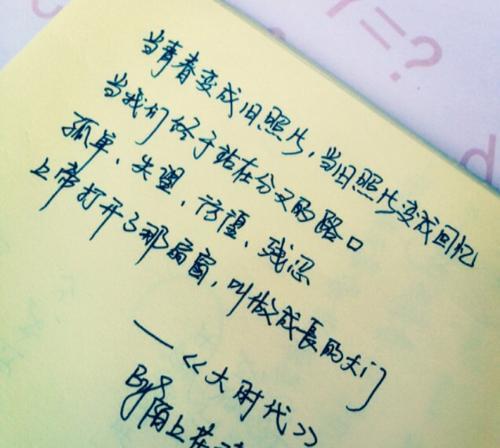 当青春变成旧照片，当旧照片变成回忆
当我们终于站在分叉的路口
孤单、失望、彷徨、残忍
上帝打开了那扇窗，叫做成長的大门
——《大时代》
By 陌上花
Y=?